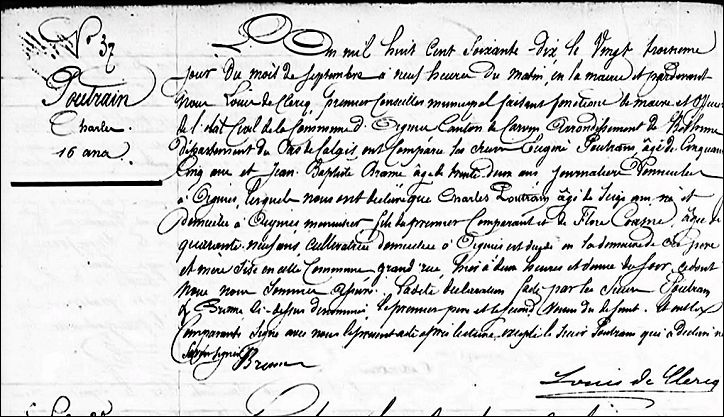 N° 37
Poutrain
Charles
16 ans.
L'an mil huit cent soixante-dix le vingt troisième
jour du mois de septembre à neuf heures du matin en la mairie et pardevant
nous Louis de Clercq, premier conseiller municipal faisant fonctions de maire et officier
de l'état civil de la commune d'Oignies canton de Carvin, arrondissement de Béthune
département du Pas de Calais ont comparu les sieurs Poutrain, âgé de cinquante
cinq ans et Jean Baptiste Brame âgé de trente deux ans journaliers domiciliés
à Oignies, lesquels nous ont déclaré que Charles Poutrain âgé de seize ans, né et
domicilié à Oignies fils du premier comparant et de Flore âgée de
quarante neuf ans cultivatrice domiciliée à Oignies est décédé en la demeure de ses père
et mère sise en cette commune grand'rue, hier à deux heures et demie du soir, ce dont
nous nous sommes assuré. Ladite déclaration faite par les sieurs Poutrain
& Brame ci-dessus dénommés, le premier père et le second voisin du défunt. Et ont les
comparants signé avec nous le présent acte après lecture, excepté le sieur Poutrain qui a déclaré ne
savoir signer
Brame
Louis de Clercq